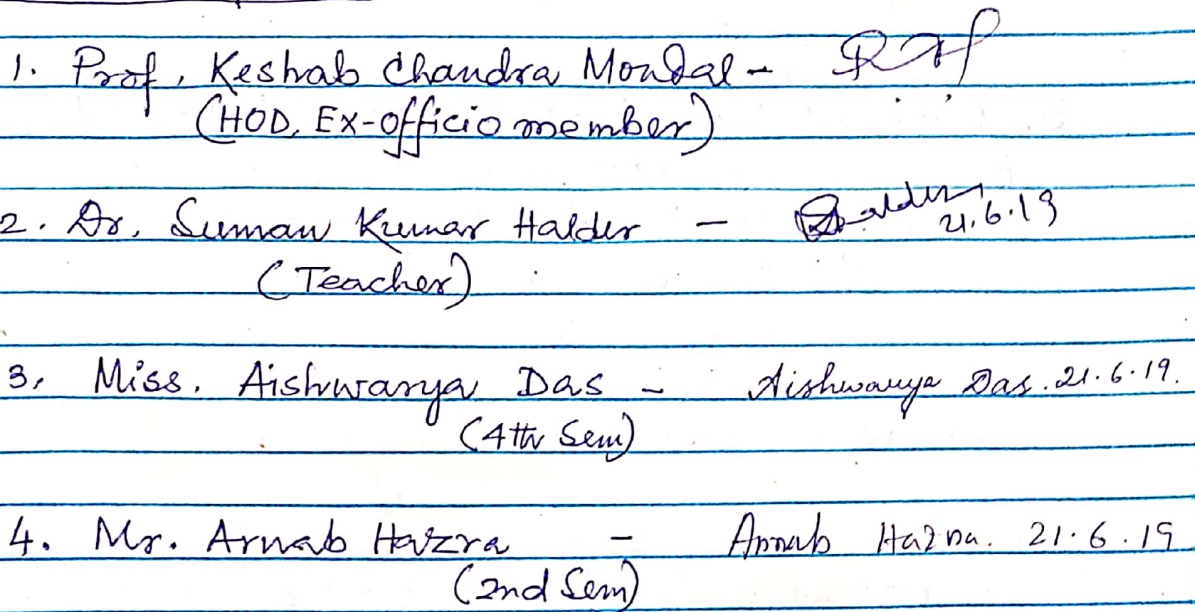 1. Prof. Keshab Chandra Mondal -
(HOD, Ex-officio member)
2. Dr. Suman Kumar Halder - Halder
21.6.19
(Teacher)
3. Miss. Aishwarya Das - Aishwarya Das. 21.6.19.
(4th Sem)
4. Mr. Arnab Hazra - Arnab Hazra. 21.6.19
(2nd Sem)